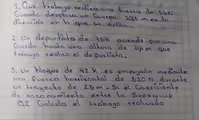 1. Que trabajo realiza una fuerza de
Cuando desplaza un cuerpo m en la
dirección en la que se aplica
2. Un deportista de 75k asciende por una
cuerda hasta una altura de 4,8m que
trabajo realiza el deportista
3. Un bloque de 43k es empujado mediante
una fuerza horizontal de durante
un trayecto de 25m - Si el coeficiente
de rozamiento entre la superficie
Calcula el trabajo realizado